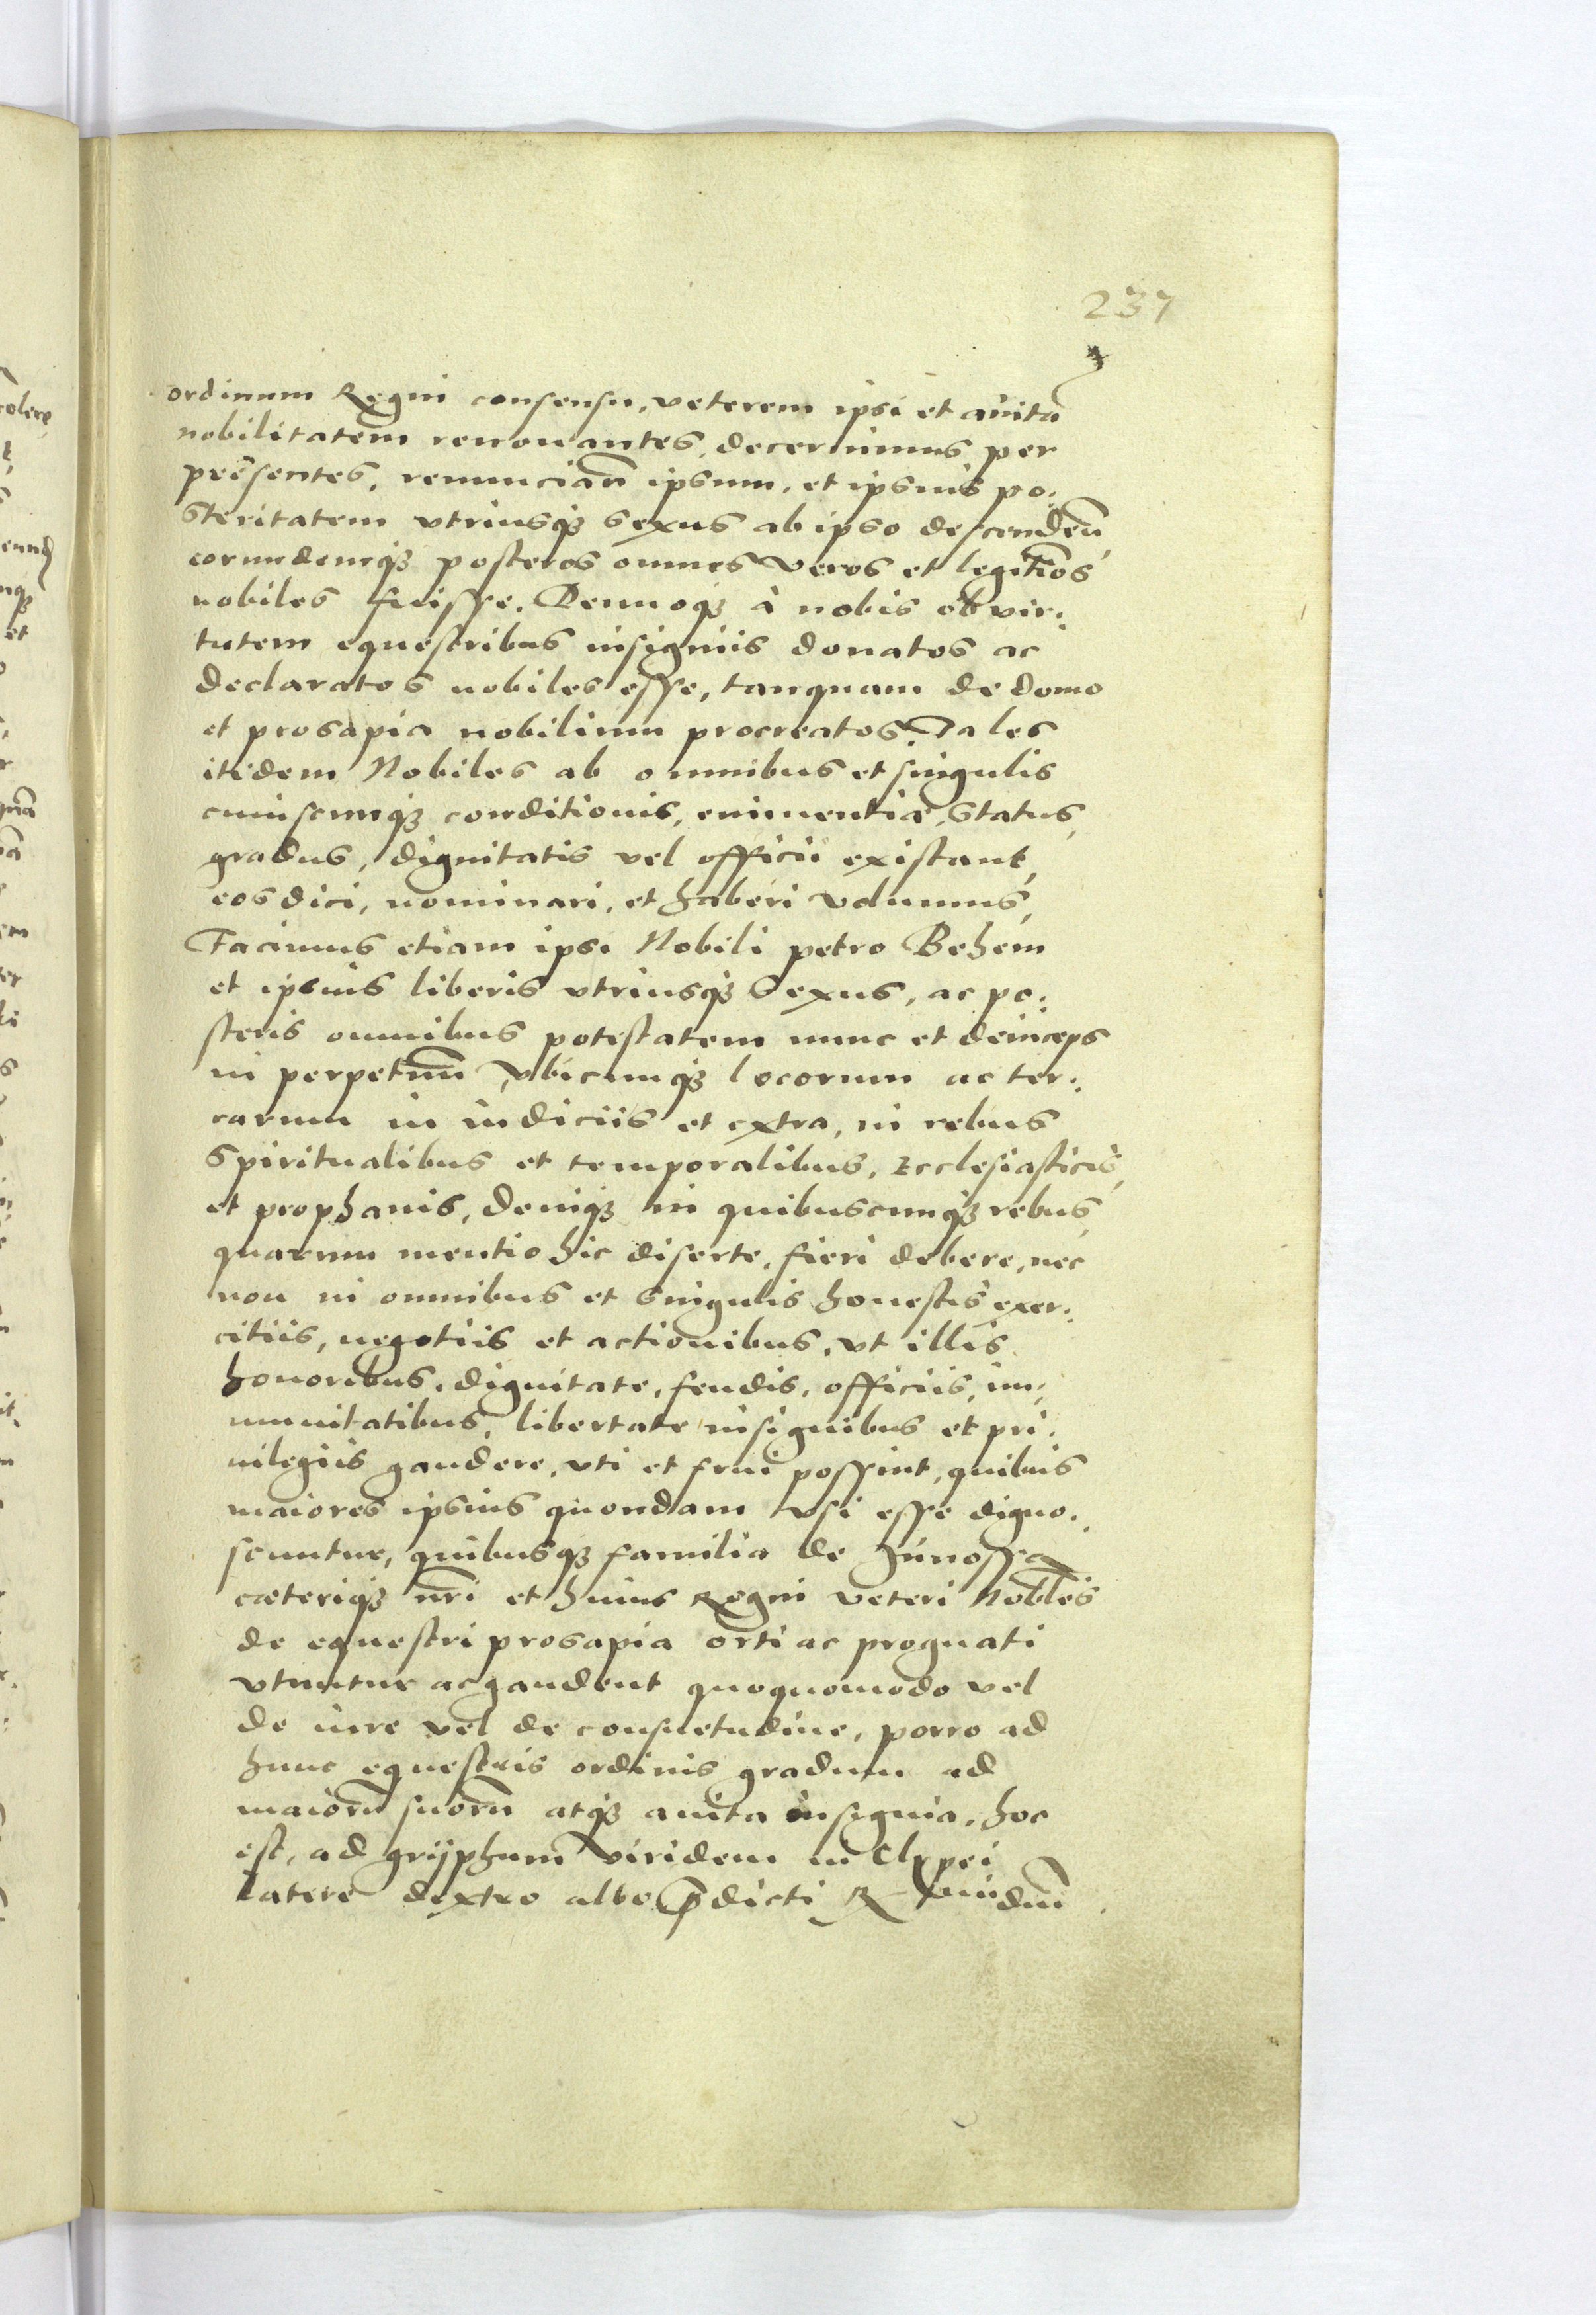 237
ordinum Regni consensu, veterem ipsi et auitā
nobilitatem renouantes, decernimus per
presentes, renunciam̄ ipsum, et ipsius po:
steritatem vtriusq3 sexus ab ipso descendeñ
eorundemq3 posteros omnes veros et legitīos
nobiles fuisse. Denuoq3 à nobis ob vir:
tutem equestribus insigniis donatos ac
declaratos nobiles esse, tanquam de domo
et prosapia nobilium procreatos. Tales
itidem Nobiles ab omnibus et singulis
cuiuscunq3 conditionis, eminentiæ, status,
gradus, dignitatis vel officii existant,
eos dici, nominari, et haberi volumus,
Facimus etiam ipsi Nobili petro Behem
et ipsius liberis vtriusq3 sexus, ac po:
steris omnibus potestatem nunc et deinceps
in perpetuū, vbicunq3 locorum ac ter:
rarum in iudiciis et extra, in rebus
spiritualibus et temporalibus, Ecclesiasticis,
et prophanis, deniq3 in quibuscunq3 rebus,
quarum mentio hic diserte, fieri debere, nec
non in omnibus et singulis honestis exer:
citiis, negotiis et actionibus, vt illis
honoribus, dignitate, feudis, officiis, im:
munitatibus, libertate insignibus et pri:
uilegiis gaudere, vti et frui possint, quibus
maiores ipsius quondam vsi esse digno:
scuntur, quibusq3 familia de Junossa
cæteriq3 nr̄i et huius Regni veteri Nobles
de equestri prosapia orti ac prognati
vtuntur ac gaudent quoquomodo vel
de iure vel de consuetudine, porro ad
hunc equestris ordinis gradum ad
maiorū suorū atq3 auita insignia, hoc
est, ad grÿphum viridem in Clypei
latere dextro albo p̄dicti R